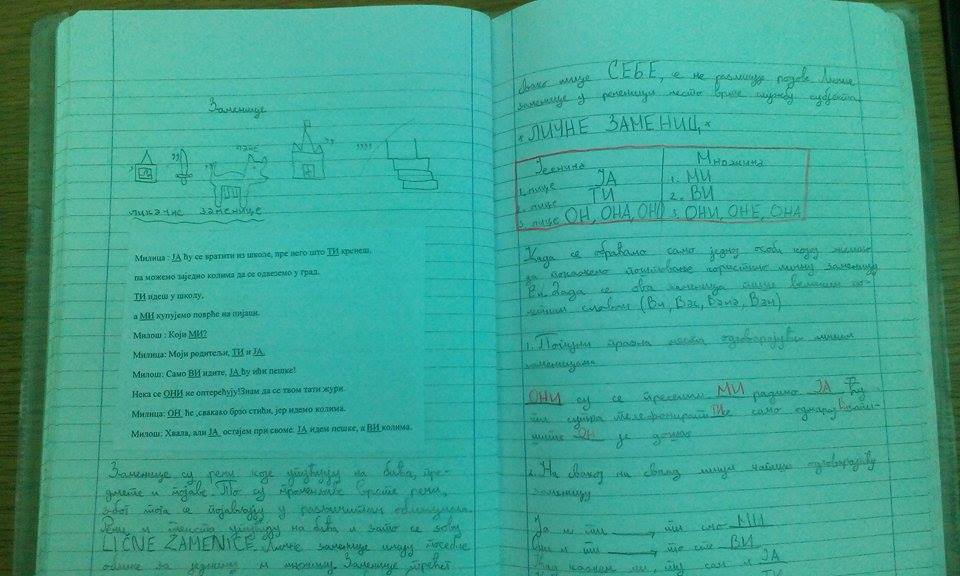 Заменице
личне заменице
Милица : ЈА ћу се вратити из школе, пре него што ТИ кренеш,
па можемо заједно колима да се одвеземо у град.
ТИ идеш у школу,
а МИ купујемо поврће на пијаци.
Милош : Који МИ?
Милица: Моји родитељи, ТИ и ЈА.
Милош: Само ВИ идите, ЈА ћу ићи пешке!
Нека се ОНИ не оптерећују!Знам да се твом тати жури.
Милица: ОН ће ,свакако брзо стићи, јер идемо колима.
Милош: Хвала, али ЈА остајем при своме. ЈА идем пешке, а ВИ колима.
Заменице су речи које упућују на бића, пре-
дмете и појаве. То су променљиве врсте речи,
због тога се појављују у различитим облицима.
упућују на бића и зато се зову
LIČNE ZAMENICE. Личне заменице имају посебне
облике за једнину и множину. Заменице трећег
Свако лице СЕБЕ, с не разликује родове. Личне
заменице у реченици често врше службу субјекта.
* ЛИЧНЕ ЗАМЕНИЦ *
Једнина Множина
1. лице ЈА 1. МИ
2. лице ТИ 2. ВИ
3. лице ОН, ОНА, ОНО 3. ОНИ, ОНЕ, ОНА
Када се обраћамо само једној особи којој желимо
да покажемо поштовање користимо личну заменицу
Ви. Тада се ова заменица пише великим по-
четним словом (Ви, Вас, Вама, Вам)
1. Попуни празна места одговарајућим личним
заменицама
ОНИ су се преселили МИ радимо ЈА ћу
ти сутра телефонирати ТИ само одмарај
ОН је дошао
2. На свакој на линији напиши одговарајућу
заменицу
Ја и ти → то смо МИ
Он и ти → то сте ВИ
Кад кажем ми, ту сам и ЈА
ТИ